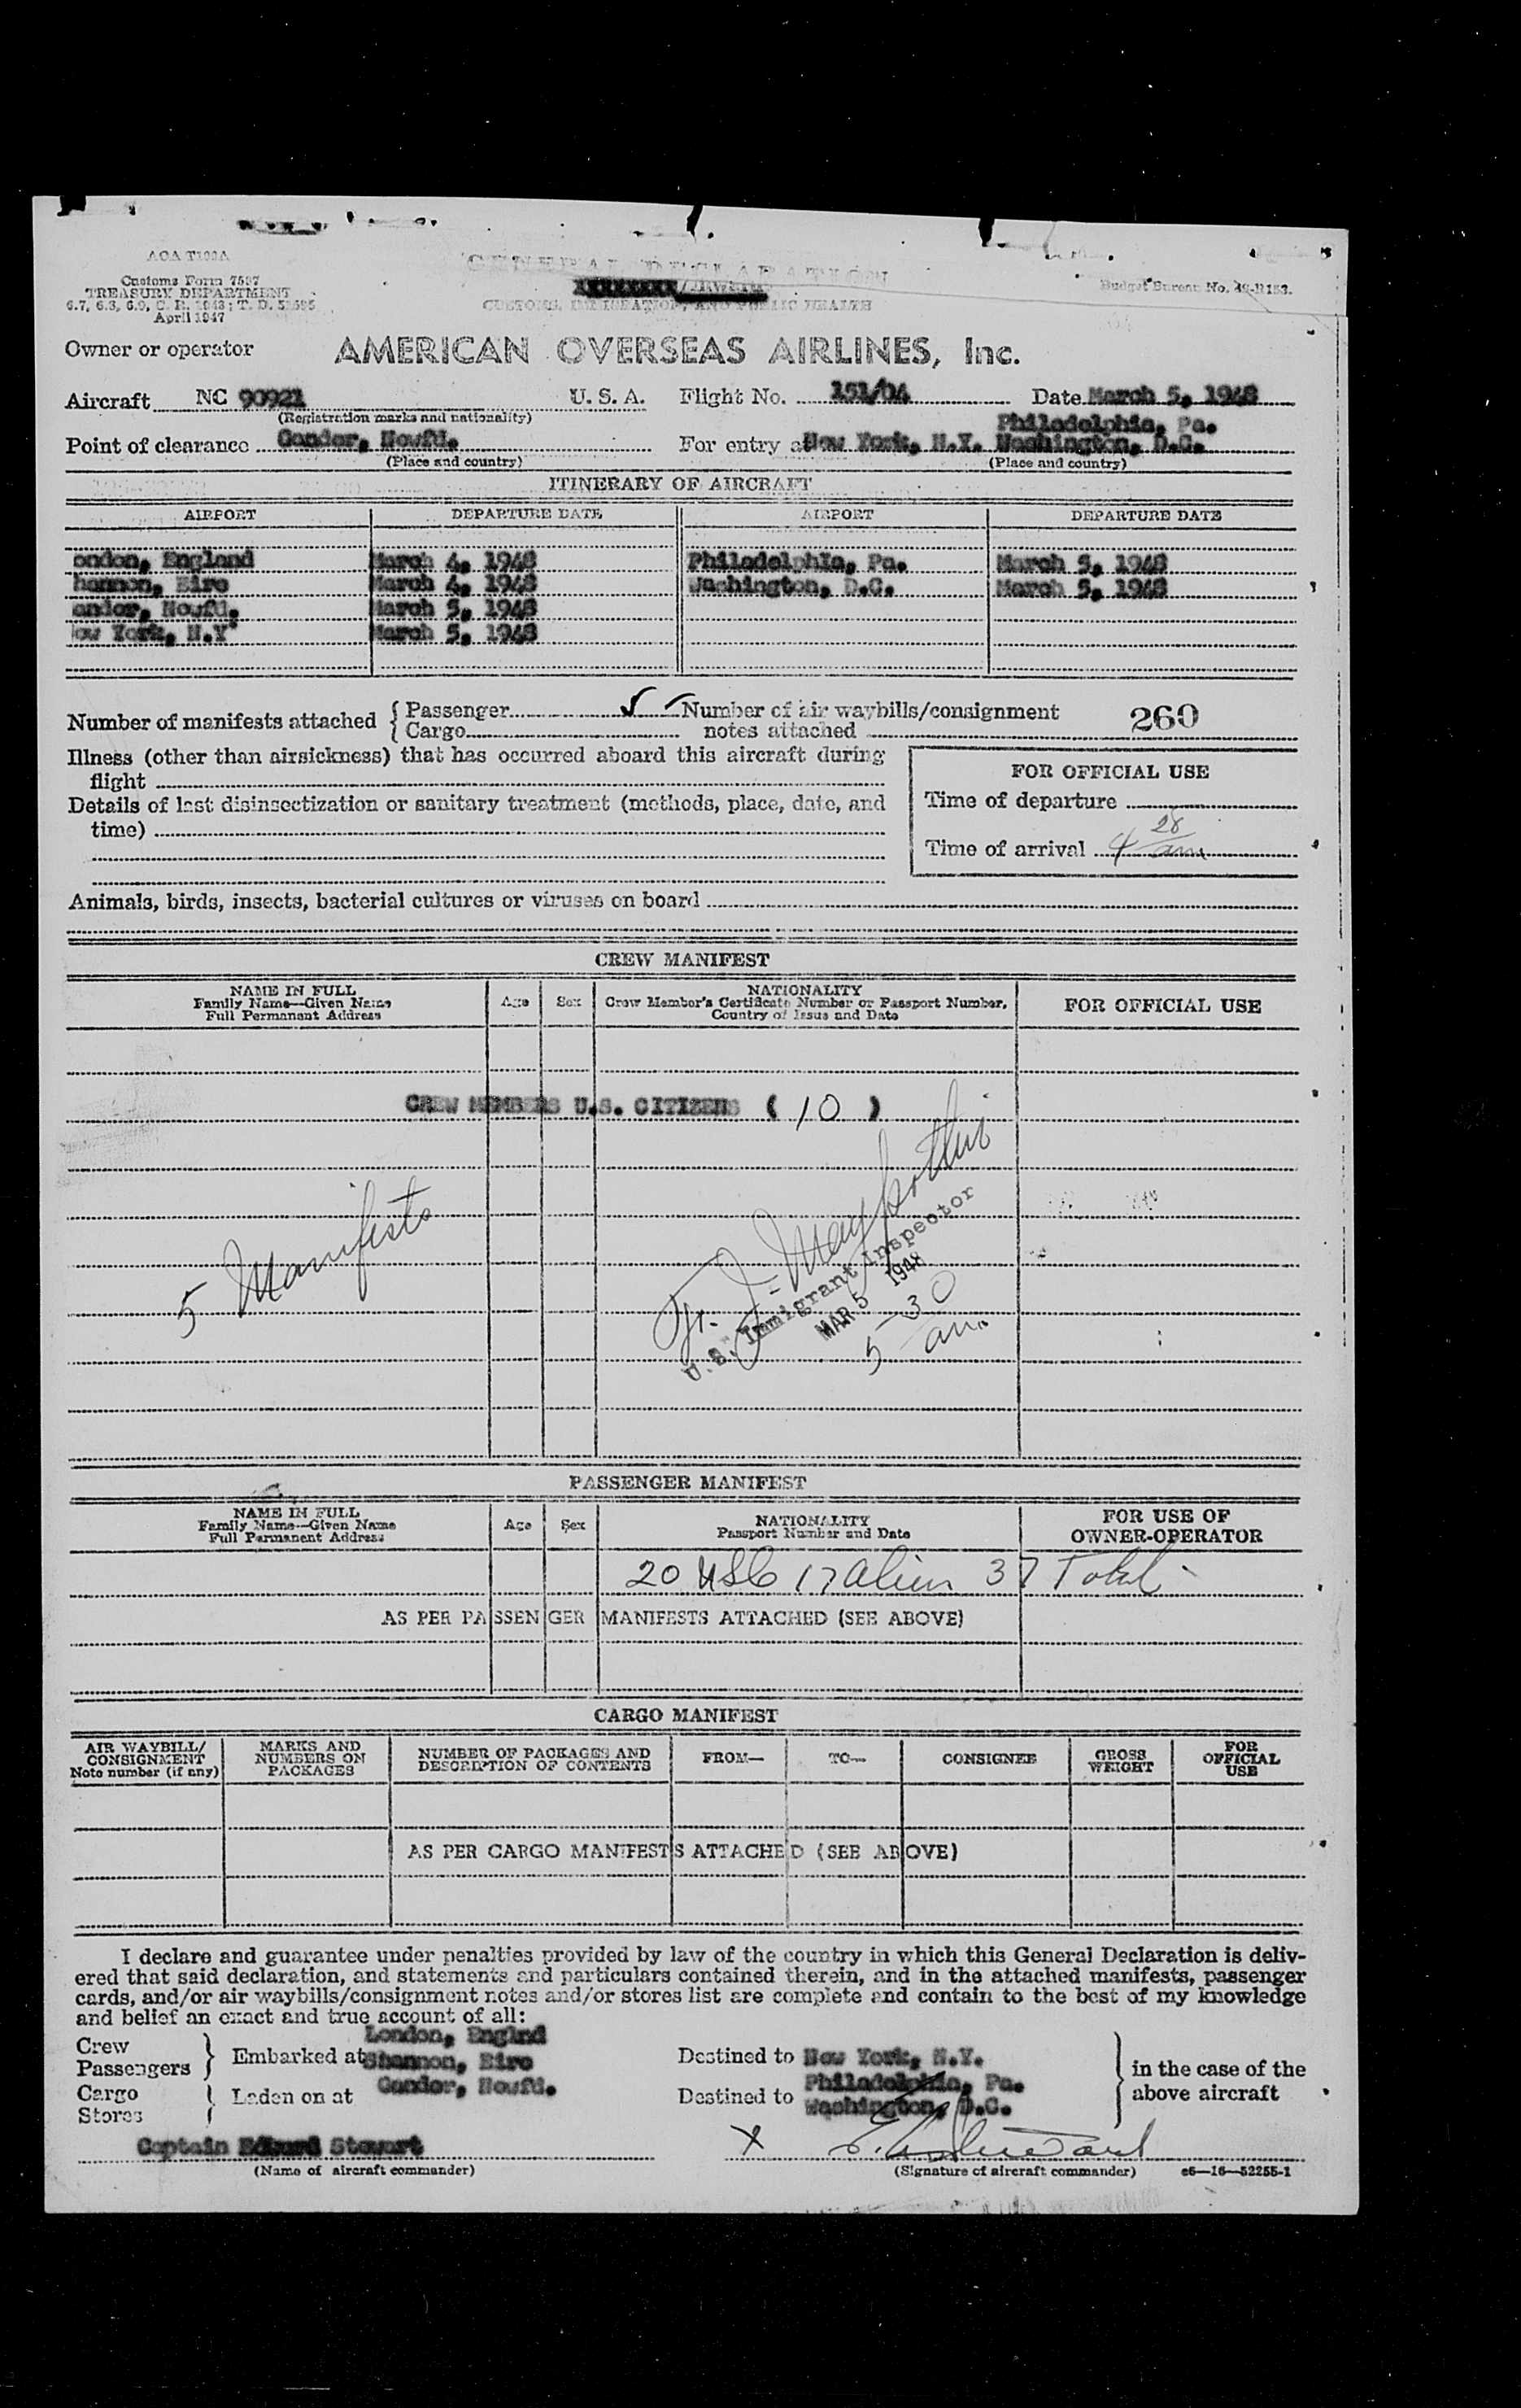 GENERAL DECLARATION
Customs Form 7507
TREASURY DEPARTMENT
April 1947
CUSTOMS, IMMIGRATION, AND PUBLIC HEALTH
Budget Bureau No.
Owner or operator AMERICAN OVERSEAS AIRLINES, Inc.
Aircraft NC 90921 U. S. A. Flight No. 151/04 Date March 5, 1948
(Registration marks and nationality)
Philadelphia, Pa.
Point of clearance Gander, Newfd. For entry at New York, N.Y. Washington, D.C.
(Place and country) (Place and country)
ITINERARY OF AIRCRAFT
AIRPORT DEPARTURE DATE AIRPORT DEPARTURE DATE
ondon, England March 4, 1948 Philadelphia, Pa. March 5, 1948
hannon, Eire March 4, 1948 Washington, D.C. March 5, 1948
ander, Newfd. March 5, 1948
ew York, N.Y March 5, 1948
Number of manifests attached { Passenger 5 Number of air waybills/consignment
{ Cargo notes attached 260
Illness (other than airsickness) that has occurred aboard this aircraft during
flight
FOR OFFICIAL USE
Details of last disinsectization or sanitary treatment (methods, place, date, and
time)
Time of departure
Time of arrival 4 28 am
Animals, birds, insects, bacterial cultures or viruses on board
CREW MANIFEST
NAME IN FULL
Family Name—Given Name
Full Permanent Address
Age Sex
NATIONALITY
Crew Member's Certificate Number or Passport Number,
Country of Issue and Date
FOR OFFICIAL USE
CREW MEMBERS U.S. CITIZENS ( 10 )
5 Manifests
U. S. Immigrant Inspector
MAR 5 1948
5 30 am.
PASSENGER MANIFEST
NAME IN FULL
Family Name—Given Name
Full Permanent Address
Age Sex
NATIONALITY
Passport Number and Date
FOR USE OF
OWNER-OPERATOR
20 USC 17 alien 37 Total
AS PER PASSENGER MANIFESTS ATTACHED (SEE ABOVE)
CARGO MANIFEST
AIR WAYBILL/
CONSIGNMENT
Note number (if any)
MARKS AND
NUMBERS ON
PACKAGES
NUMBER OF PACKAGES AND
DESCRIPTION OF CONTENTS
FROM— TO— CONSIGNEE
GROSS
WEIGHT
FOR
OFFICIAL
USE
AS PER CARGO MANIFESTS ATTACHED (SEE ABOVE)
I declare and guarantee under penalties provided by law of the country in which this General Declaration is deliv-
ered that said declaration, and statements and particulars contained therein, and in the attached manifests, passenger
cards, and/or air waybills/consignment notes and/or stores list are complete and contain to the best of my knowledge
and belief an exact and true account of all:
London, Englnd
Crew
Passengers } Embarked at Shannon, Eire Destined to New York, N.Y. in the case of the
Cargo
Stores Laden on at Gander, Newfd. Destined to Philadelphia, Pa. above aircraft
Washington, D.C.
Captain Edward Stewart X
(Name of aircraft commander) (Signature of aircraft commander) c6—16—52255-1